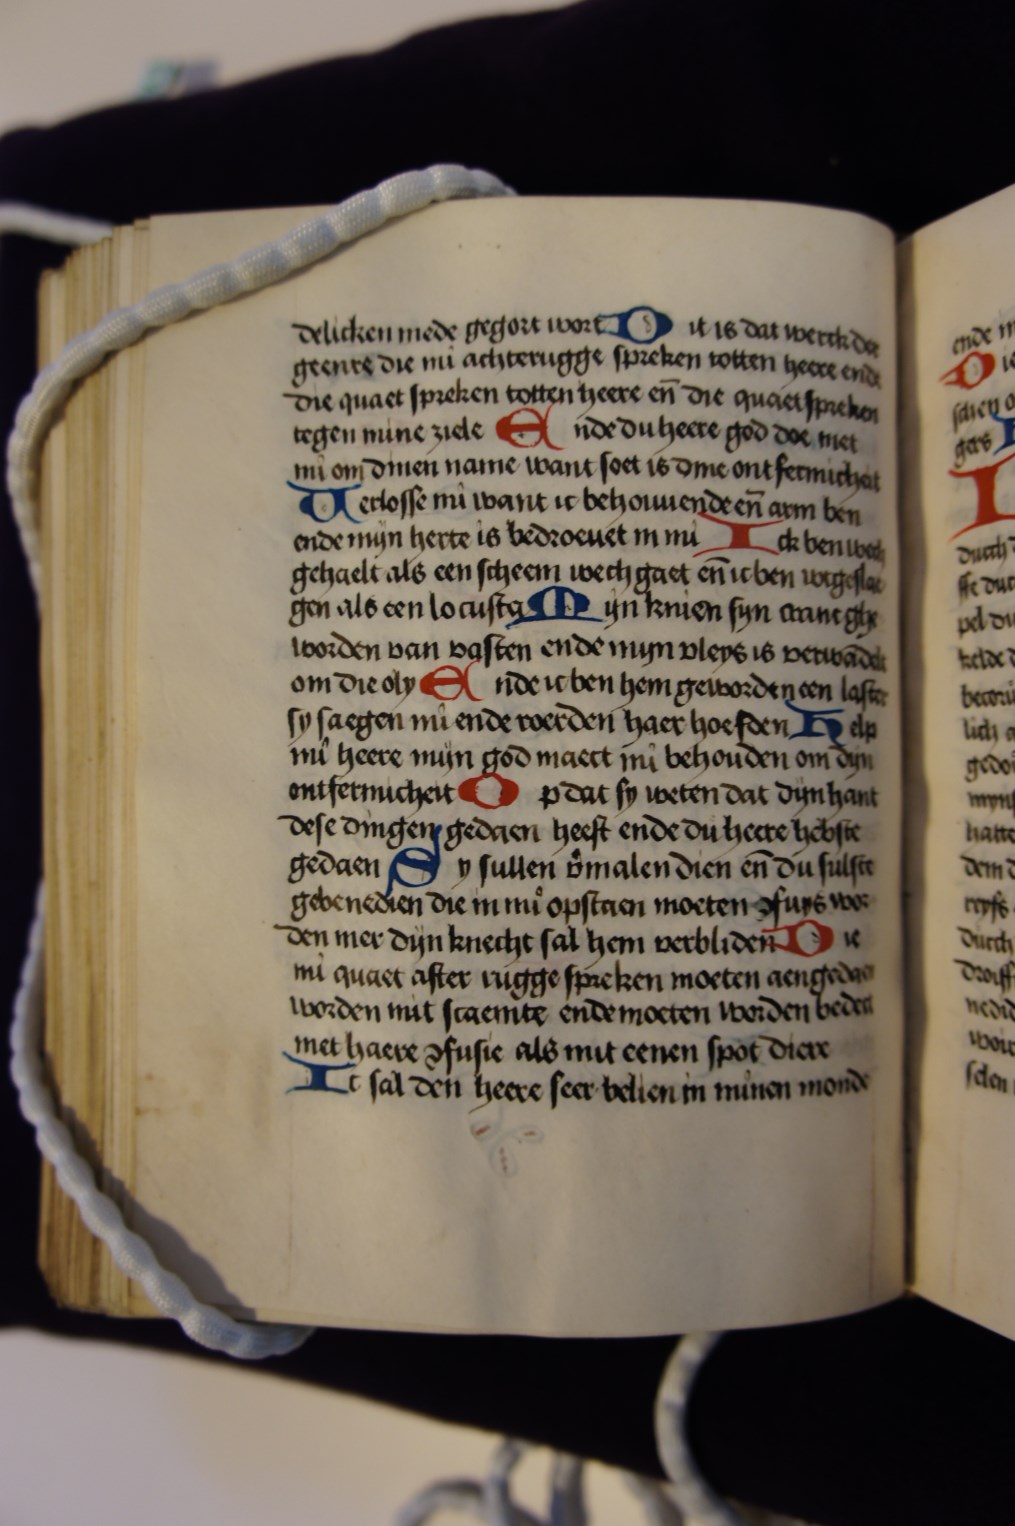 delicken mede gegort wort Dit is dat werck der
geenre die mi achterugge spreken totten heere ende
die quaet spreken totten heere en̄ die quaet spreken
tegen mine ziele Ende du heere god doe met
mi om dinen name want soet is dine ontfermicheit
Verlosse mi want ic behouuende en̄ arm ben
ende mijn herte is bedroeuet in mi Ick ben wech
gehaelt als een scheem wech gaet en̄ ic ben wtgeslae
gen als een locusta Mijn knien syn cranc ghe
worden van vasten ende mijn vleys is verwādelt
om die oly Ende ic ben hem geworden een laster
sy saegen mi ende roerden haer hoefden Help
mi heere mijn god maect mi behouden om dijn
ontfermicheit Op dat sy weten dat dijn hant
dese dingen gedaen heeft ende du heere hebste
gedaen Sy sullen v̄malen dien en̄ du sulste
gebenedien die in mi opstaen moeten ꝯfuys wor
den mer dijn knecht sal hem verbliden Die
mi quaet after rugge spreken moeten aengedaen
worden mit scaemte ende moeten worden bedect
met haere ꝯfusie als mit eenen spot diere
Ic sal den heere seer belien in minen monde